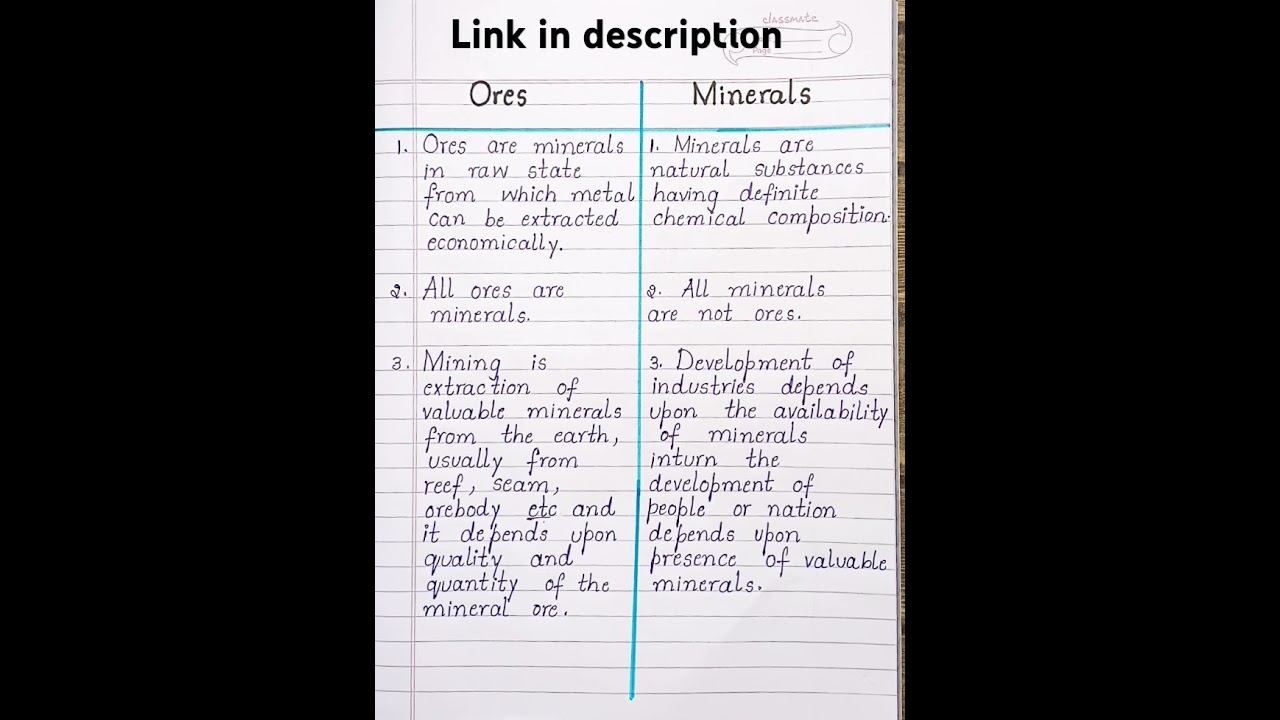 Link in description
classmate
Page
Ores
Minerals
1. Ores are minerals
in raw state
from which metal
can be extracted
economically.
1. Minerals are
natural substances
having definite
chemical composition.
2. All ores are
minerals.
2. All minerals
are not ores.
3. Mining is
extraction of
valuable minerals
from the earth,
usually from
reef, seam,
orebody etc and
it depends upon
quality and
quantity of the
mineral ore.
3. Development of
industries depends
upon the availability
of minerals
inturn the
development of
people or nation
depends upon
presence of valuable
minerals.